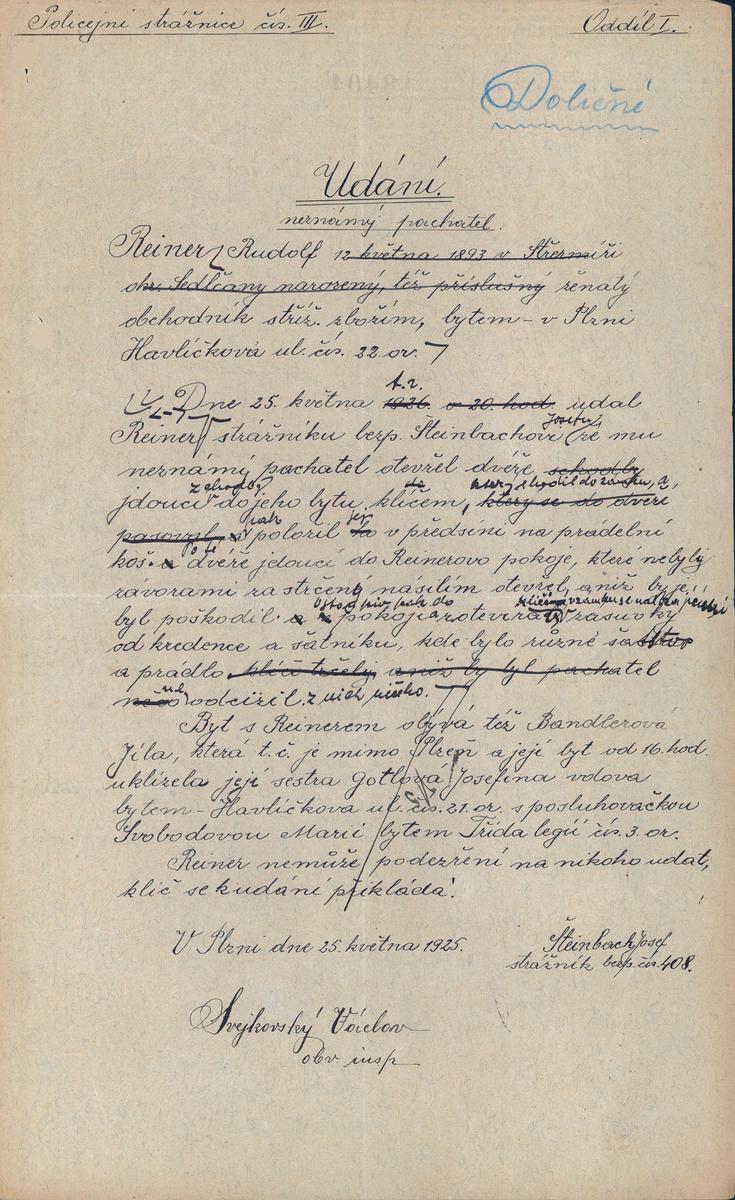 Policejní strážnice čís. III. Oddíl I.
Doličné
Udání.
neznámý pachatel.
Reiner Rudolf 12 května 1893 v Střezmíři
okr. Sedlčany narozený, též příslušný ženatý
obchodník střiž. zbožím, bytem - v Plzni
Havlíčková ul. čís. 22 or.
t. r.
Dne 25. května 1926 o 20. hod. udal
Josefu
Reiner strážníku bezp. Šteinbachovi že mu
neznámý pachatel otevřel dvéře schodby
z chodby který se hodil do zámku, a
jdoucí do jeho bytu, klíčem, který se do dveří
pak jej
pasoval, položil to v předsíni na prádelní
Poté
koš. a dvéře jdoucí do Reinerovo pokoje, které nebyly
závorami zastrčeny násilím otevřel, aniž by je
byl poškodil a pokoje zotevíral zásuvky
od kredence a šatníku, kde bylo různé šatstvo
a prádlo klíč trčely aniž by byl pachatel
něco odcizil. z nich ničho.
Byt s Reinerem obývá též Bandlerová
Jíla, která t. č. je mimo Plzeň a její byt od 16. hod.
uklízela její sestra Gotlová Josefina vdova
bytem - Havlíčkova ul. čís. 21. or. s posluhovačkou
Svobodovou Marií bytem Třída legií čís. 3. or.
Reiner nemůže podezření na nikoho udat,
klíč se k udání přikládá.
V Plzni dne 25. května 1925.
Šteinbach Josef
strážník bezp. čís. 408.
Svejkovský Václav
obv. insp